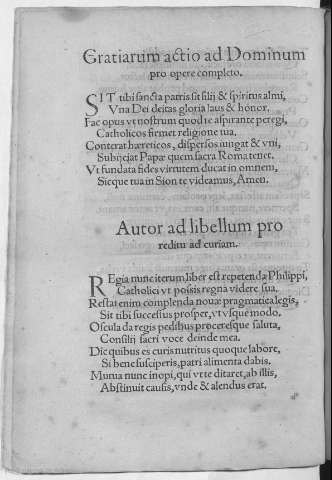 Gratiarum actio ad Dominum
pro opere completo.
SIT tibi sancta patris sit filij & spiritus almi,
Vna Dei deitas gloria laus & honor,
Fac opus vt nostrum quod te aspirante peregi,
Catholicos firmet religione tua.
Conterat hæreticos, dispersos iungat & vni,
Subijciat Papæ quem sacra Roma tenet.
Vt fundata fides virtutem ducat in omnem,
Sicque tua in Sion te videamus, Amen.
Autor ad libellum pro
reditu ad curiam.
REgia nunc iterum liber est repetenda Philippi,
Catholici vt possis regna videre sua.
Restat enim complenda nouæ pragmatica legis,
Sit tibi successus prosper, vt vsque modo.
Oscula da regis pedibus proceresque saluta,
Consilij sacri voce deinde mea.
Dic quibus es curis nutritus quoque labore,
Si bene susciperis, patri alimenta dabis.
Mutua nunc inopi, qui vt te ditaret, ab illis,
Abstinuit causis, vnde & alendus erat.